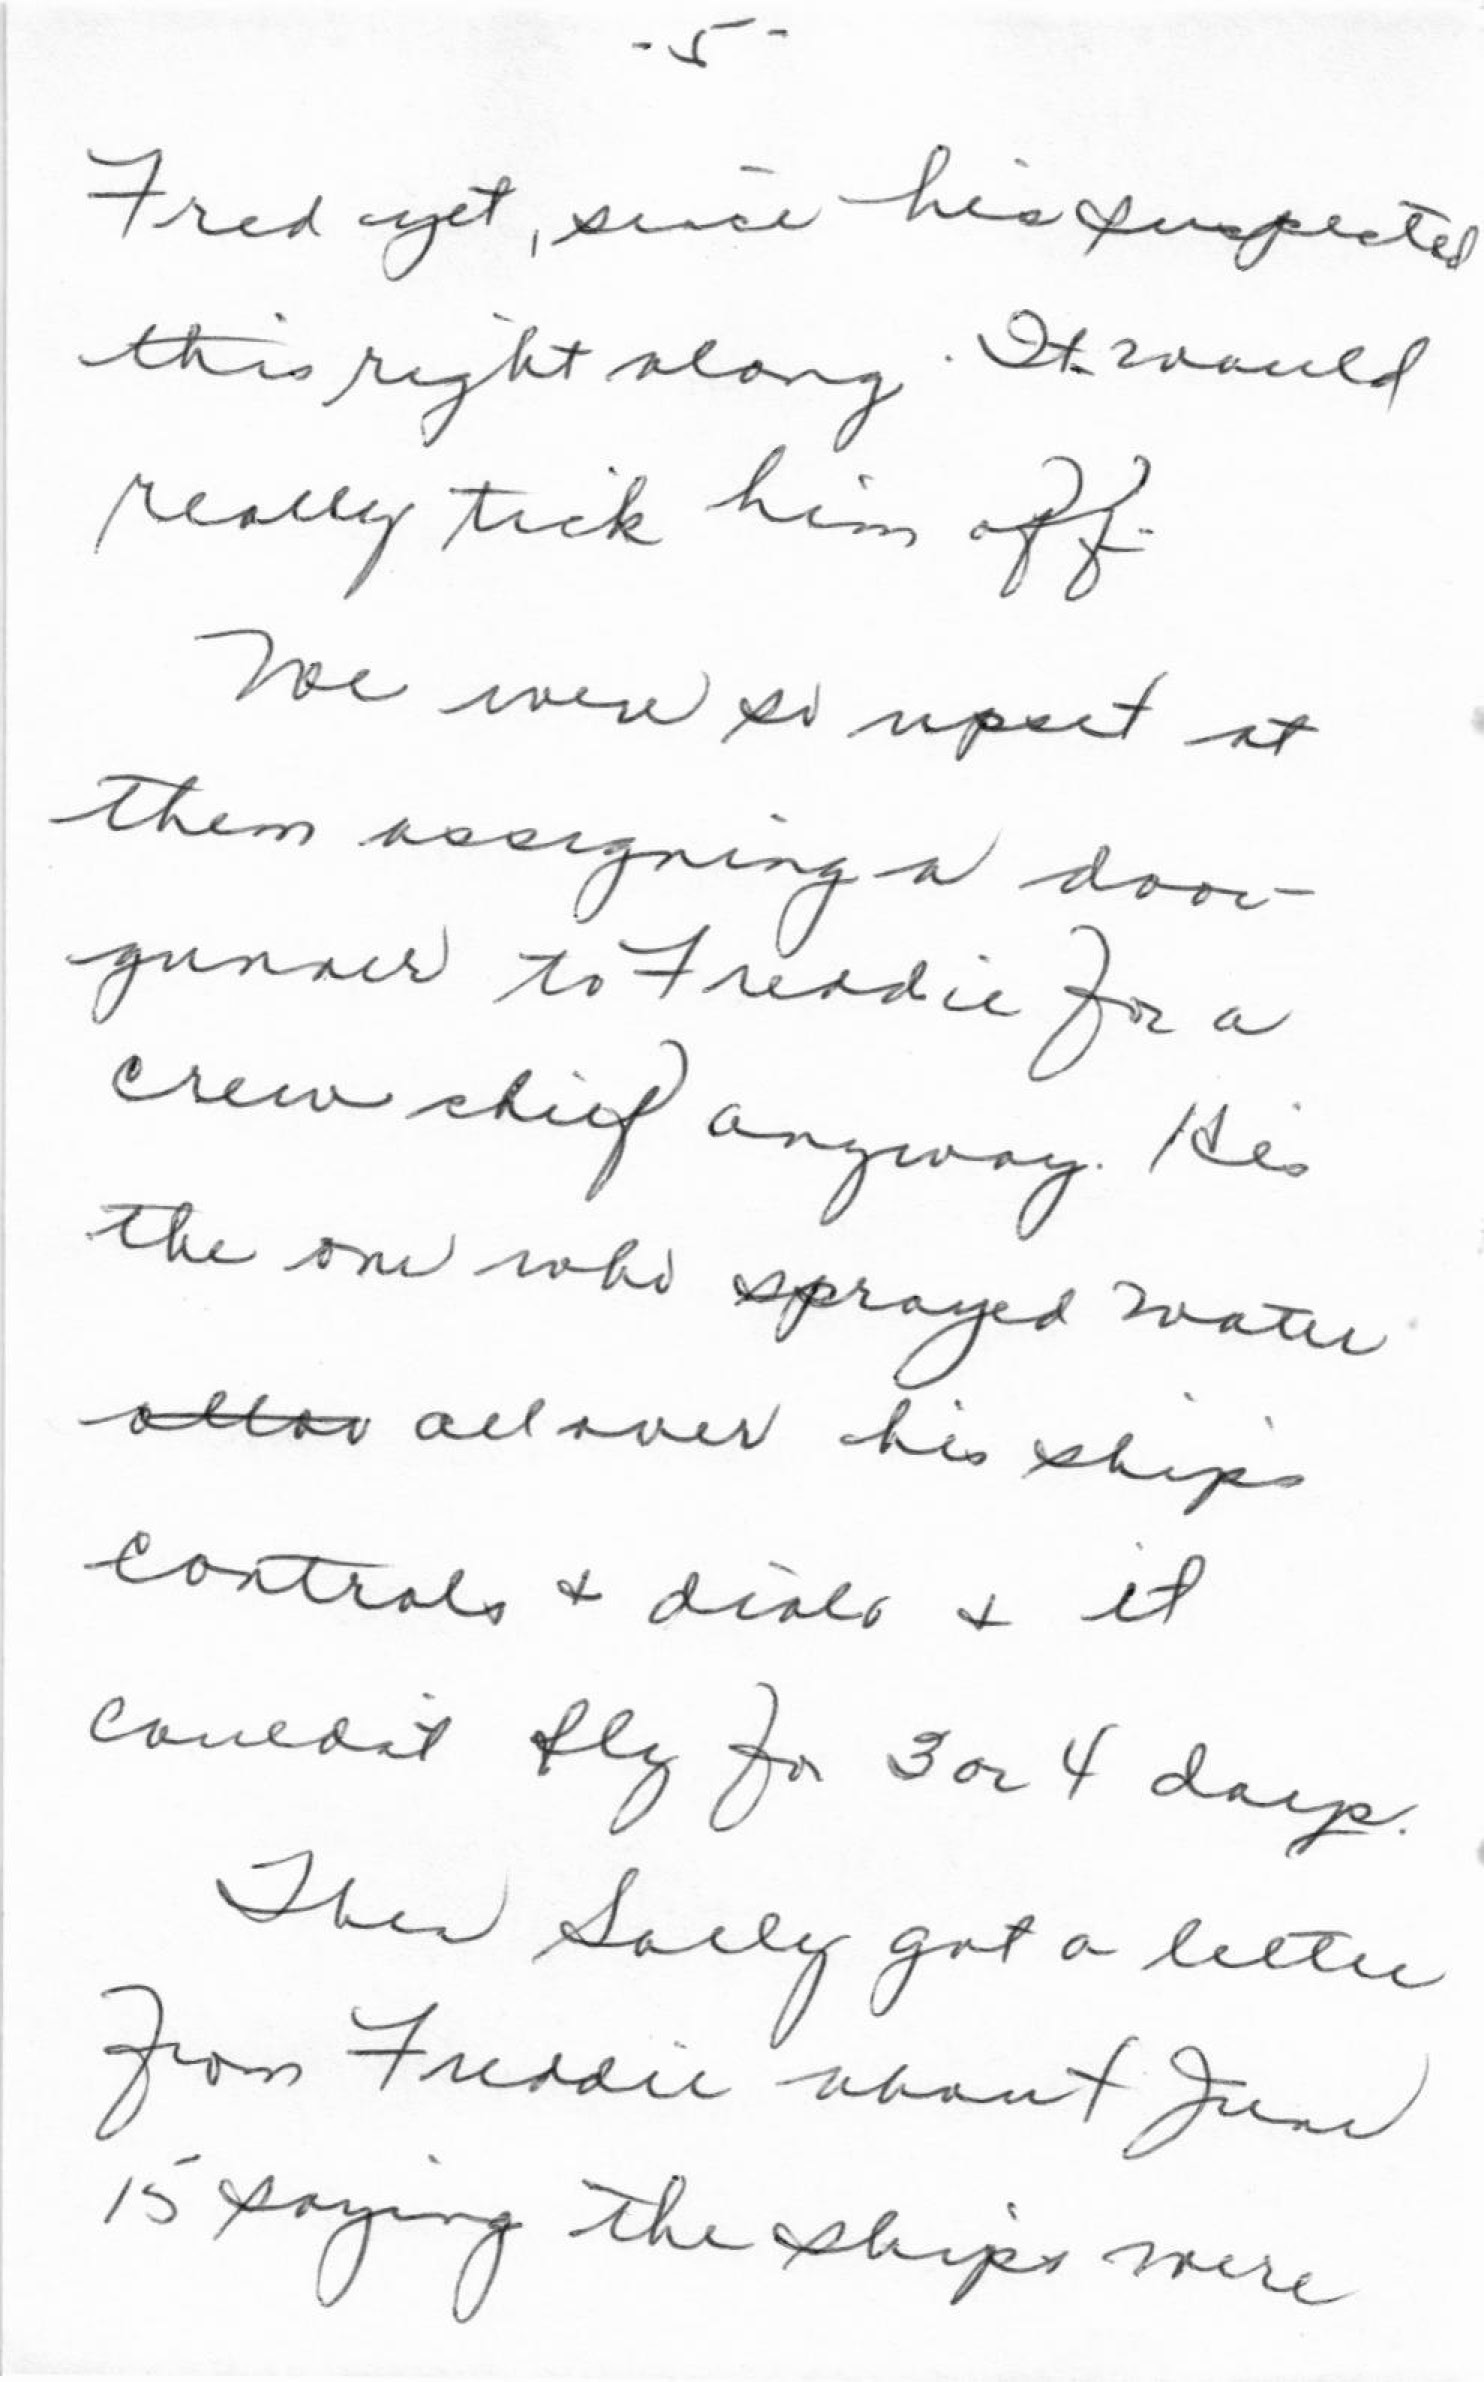 - 5 -
Fred yet, since his suspected
this right along. It would
really tick him off.
We were so upset at
them assigning a door
gunner to Freddie for a
crew chief anyway. His
the one who sprayed water
allov all over his ship's
controls & dials & it
couldn't fly for 3 or 4 days.
Then Sally got a letter
from Freddie about June
15 saying the ships were